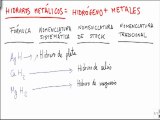 HIDRUROS METÁLICOS = HIDRÓGENO + METALES
FÓRMULA NOMENCLATURA SISTEMÁTICA NOMENCLATURA DE STOCK NOMENCLATURA TRADICIONAL
Ag H → Hidruro de plata
Ca H₂ → Hidruro de calcio
Mg H → Hidruro de